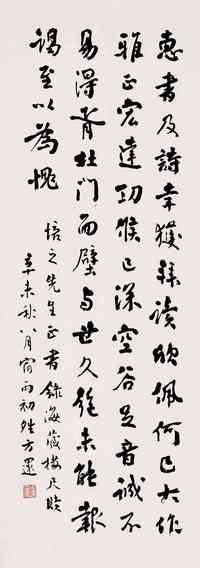 惠書及詩幸獲拜讀欽佩何已大作
雅正宏達功候已深空谷足音誠不
易得胥杜门面壁与世久未能報
謁至以為愧
培之先生正書錄海藏樓尺牘
辛未秋八月雨初方還